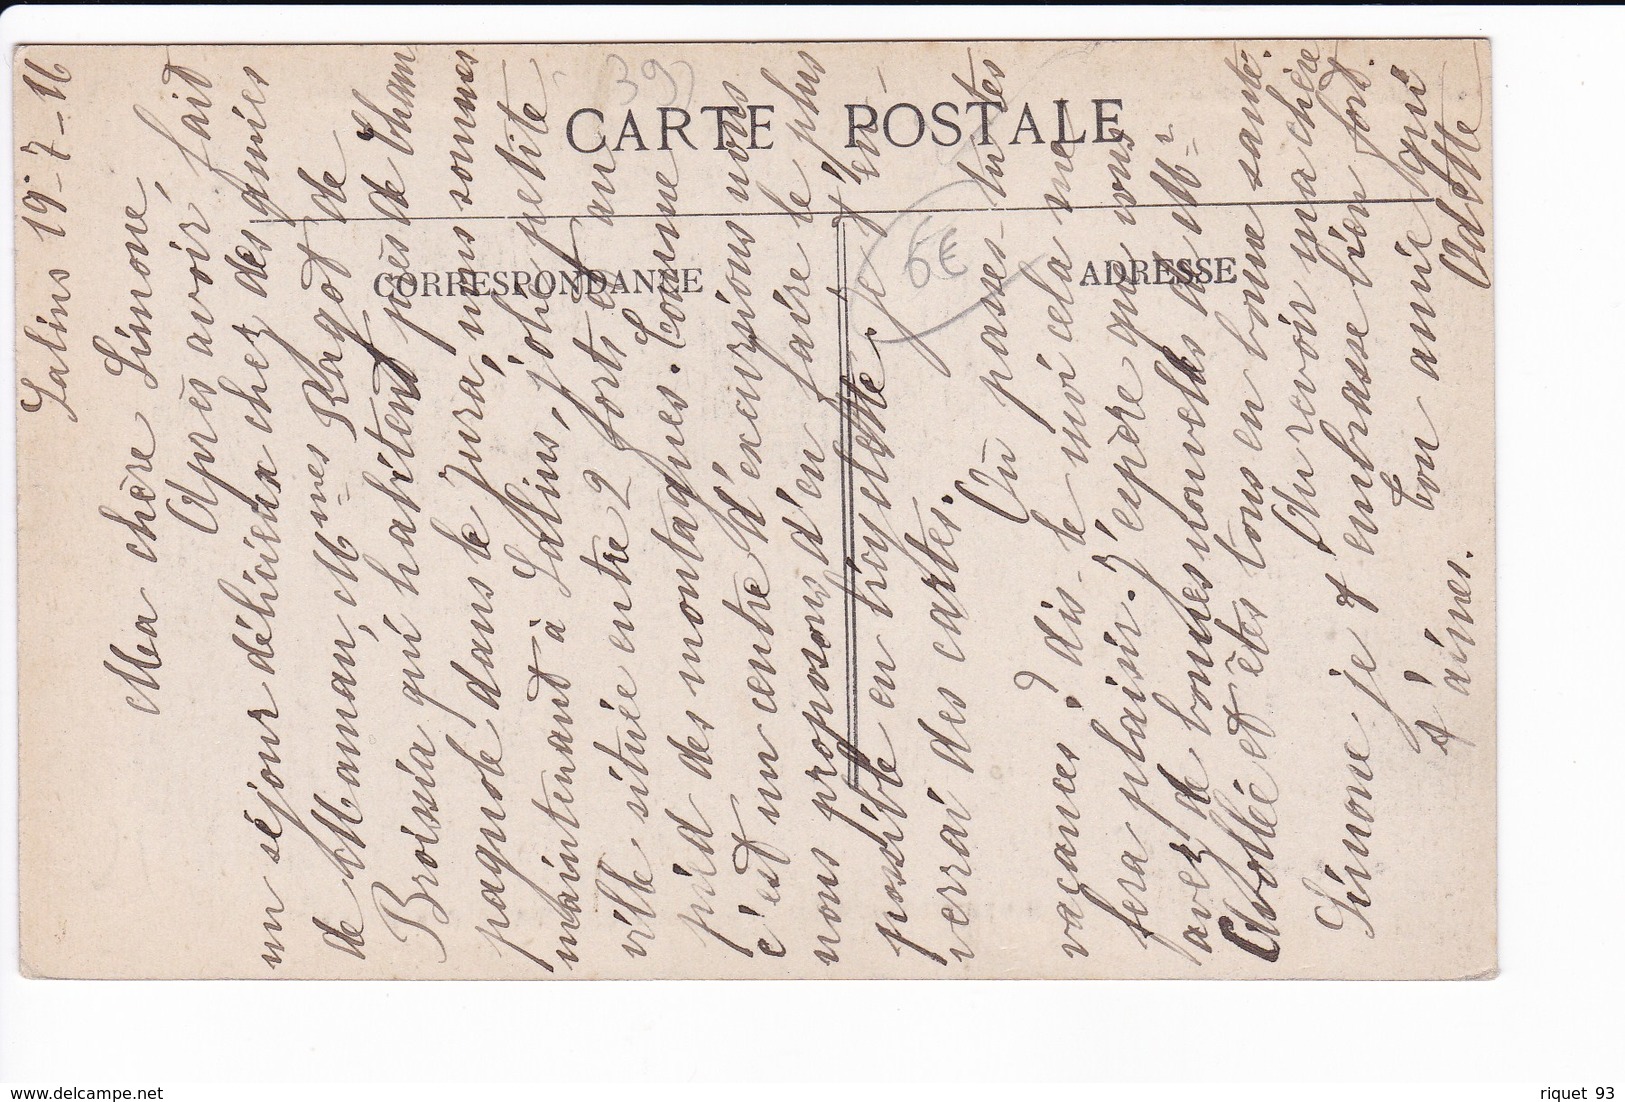 Salins 19-7-16
Ma chère Simone,
Après avoir fait
un séjour délicieux chez des amies
de Maman, Mmes Ragot de
Broissia qui habitent près de Cham
pagnole dans le Jura, nous sommes
maintenant à Salins, jolie petite
ville située entre 2 forts et au
pied des montagnes. Comme
c'est un centre d'excursions nous
nous proposons d'en faire le plus
possible en bicyclette. Je t'en-
verrai des cartes.
Où passes-tu tes
vacances? dis-le moi cela me
fera plaisir. J'espère que vous
avez de bonnes nouvelles de Mr
et êtes tous en bonne santé.
Au revoir ma chère
Simone je t'embrasse bien fort.
Ton amie qui
t'aimes.
Odette
CARTE POSTALE
CORRESPONDANCE
ADRESSE
39
6€
riquet 93